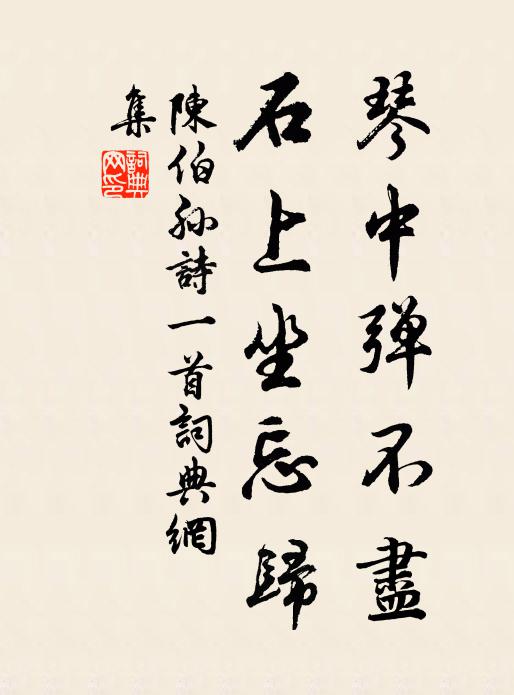 琴中弹不盡
石上坐忘歸
陳伯孙詩一首詞典網
集
詞典
网印